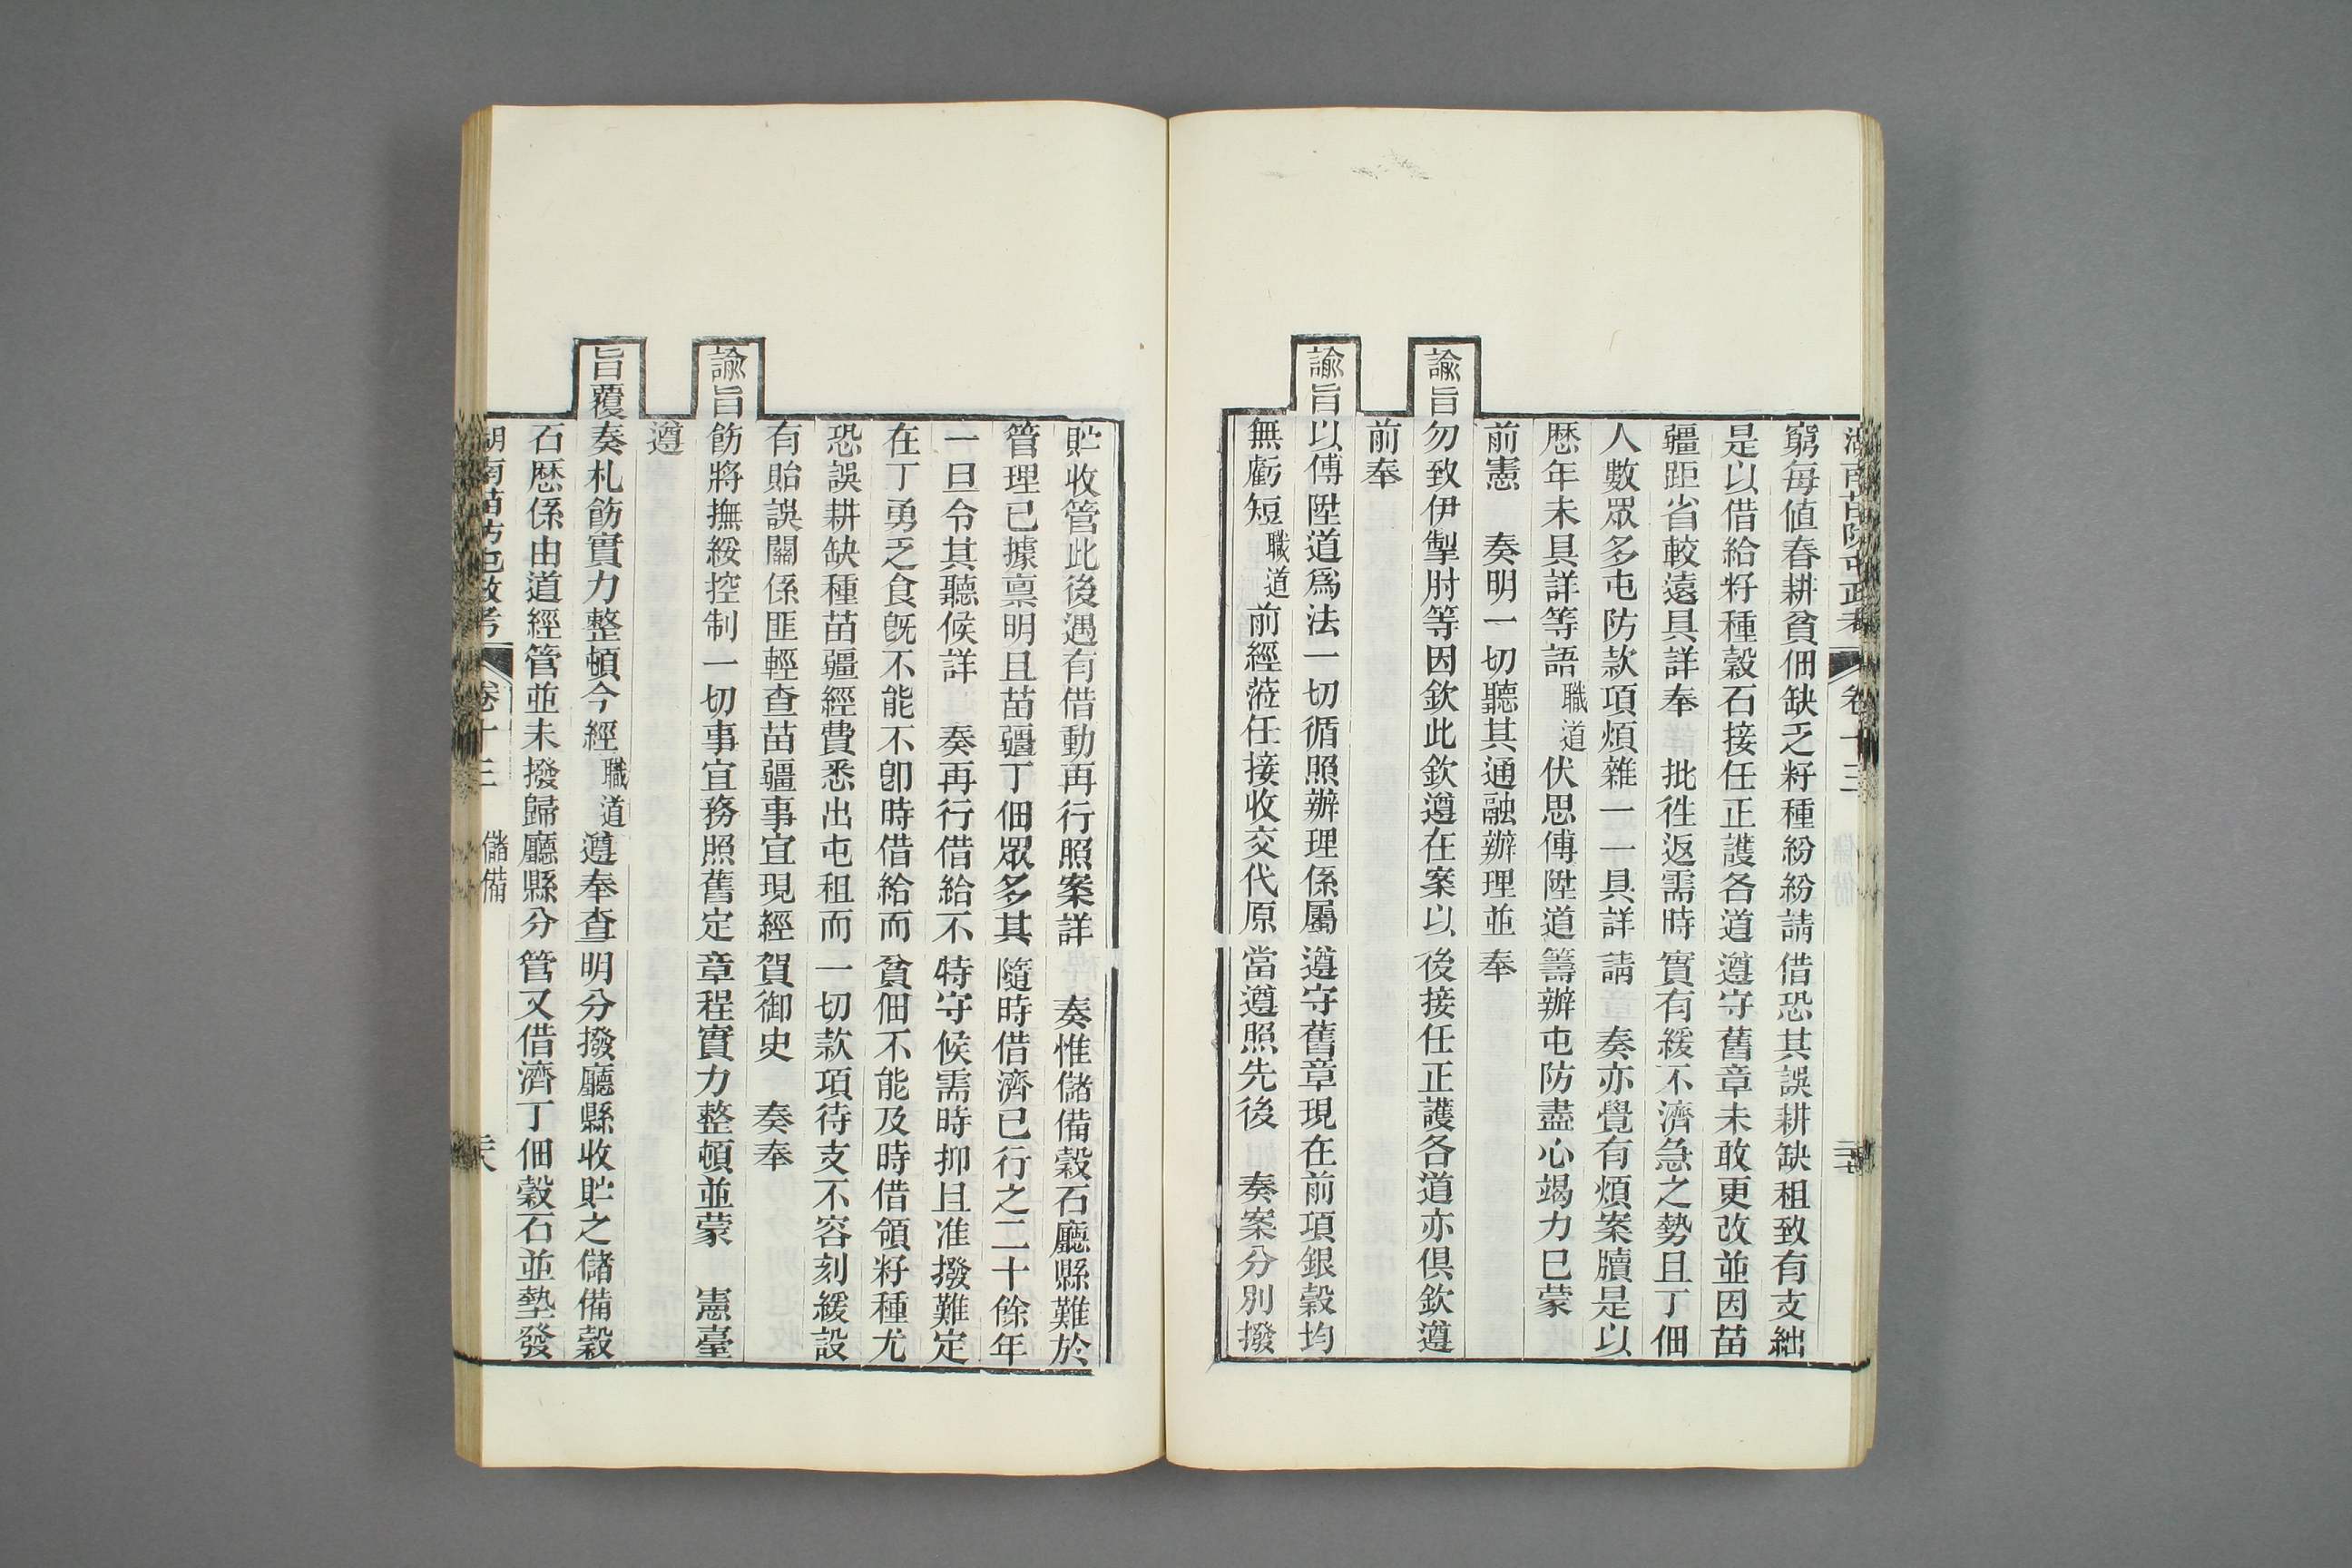 湖南苗防屯政考 卷十三 二十七
窮每値春耕貧佃缺乏籽種紛紛請借恐其誤耕缺租致有支絀
是以借給籽種穀石接任正護各道遵守舊章未敢更改並因苗
疆距省較遠具詳奉 批徃返需時實有緩不濟急之勢且丁佃
人數眾多屯防款項煩雜一一具詳請 奏亦覺有煩案牘是以
歷年未具詳等語職道伏思傅陞道籌辦屯防盡心竭力已蒙
前憲 奏明一切聽其通融辦理並奉
諭旨勿致伊掣肘等因欽此欽遵在案以後接任正護各道亦俱欽遵
前奉
諭旨以傅陞道爲法一切循照辦理係屬遵守舊章現在前項銀穀均
無虧短職道前經蒞任接收交代原當遵照先後 奏案分別撥
貯收管此後遇有借動再行照案詳 奏惟儲備穀石廳縣難於
管理已據禀明且苗疆丁佃眾多其隨時借濟已行之二十餘年
一旦令其聽候詳 奏再行借給不特守候需時抑且准撥難定
在丁勇乏食旣不能不卽時借給而貧佃不能及時借領籽種尤
恐誤耕缺種苗疆經費悉出屯租而一切款項待支不容刻緩設
有貽誤關係匪輕查苗疆事宜現經賀御史 奏奉
諭旨飭將撫綏控制一切事宜務照舊定章程實力整頓並蒙 憲臺
遵
旨覆奏札飭實力整頓今經職道遵奉查明分撥廳縣收貯之儲備穀
石歷係由道經管並未撥歸廳縣分管又借濟丁佃穀石並墊發
湖南苗防屯政考 卷十三 儲備 二十八